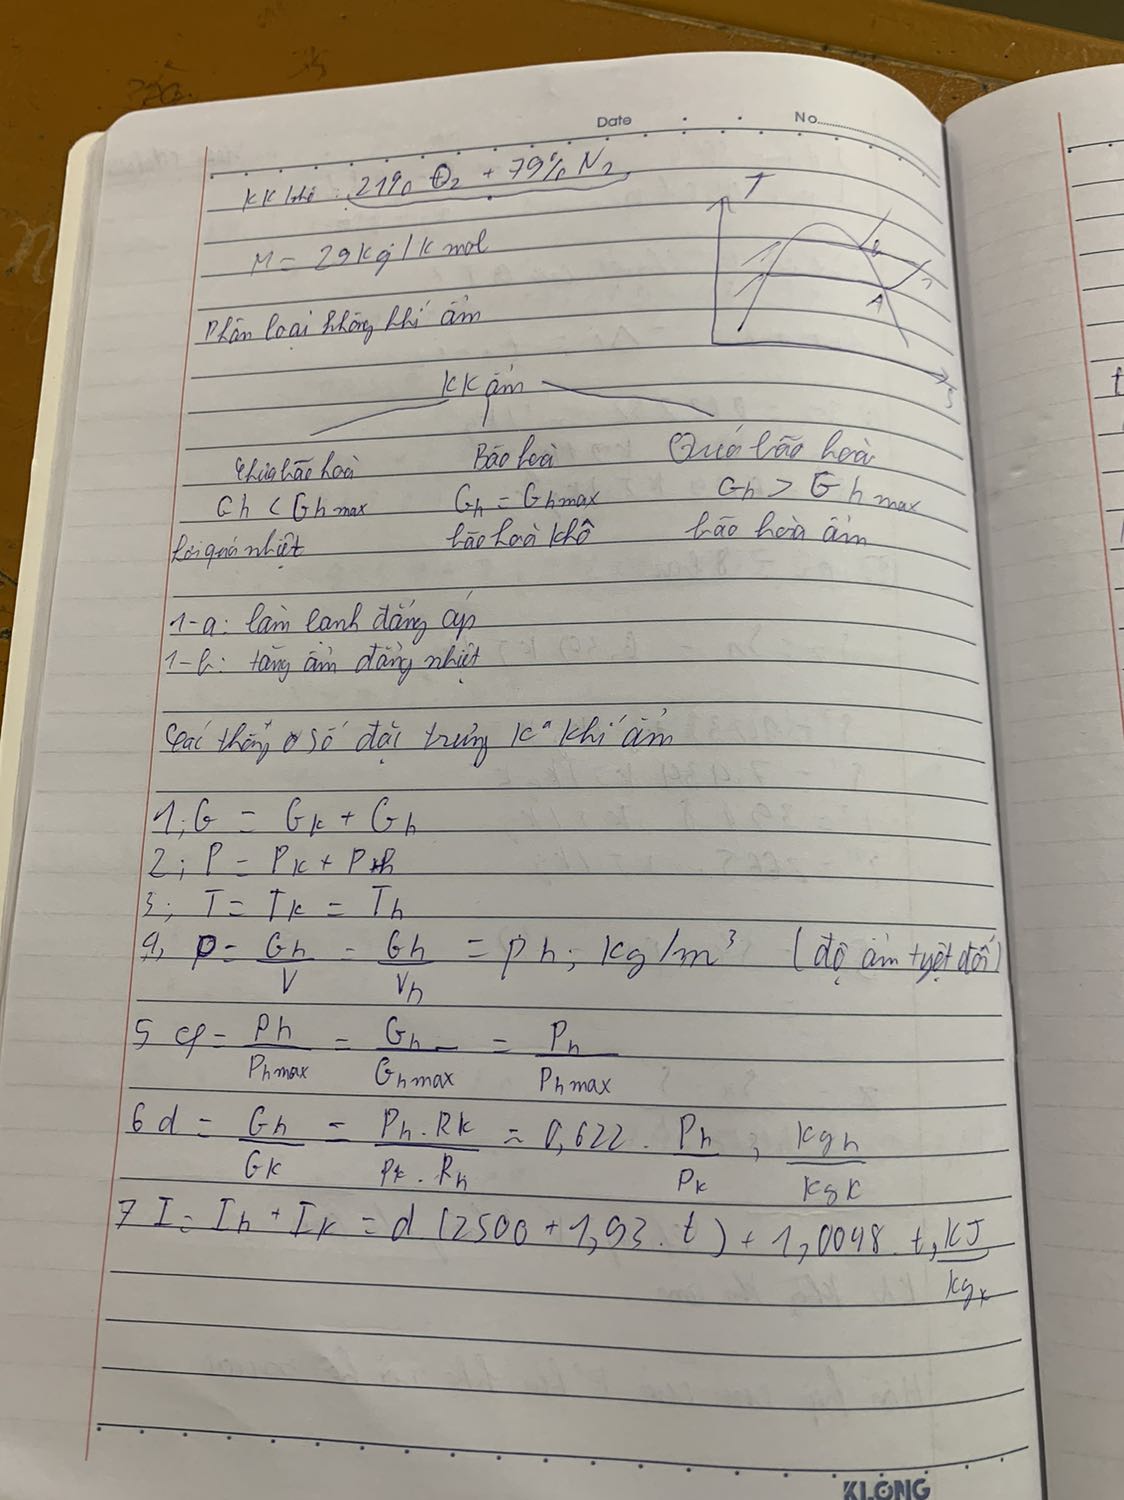 Date No
KK khô: 21% O₂ + 79% N₂
T
M = 29 kg/kmol
B
1
A
Phân loại không khí ẩm
S
KK ẩm
Chưa bão hoà Bão hoà Quá bão hoà
Gh < Gh max Gh = Gh max Gh > Gh max
hơi quá nhiệt bão hoà khô bão hoà ẩm
1-a: làm lạnh đẳng áp
1-b: tăng ẩm đẳng nhiệt
Các thông số đặc trưng kº khí ẩm
1; G = Gk + Gh
2; P = Pk + Ph
3; T = Tk = Th
4, ρ = Gh/V = Gh/Vh = ρh; kg/m³ (độ ẩm tuyệt đối)
5 φ = ρh/ρhmax = Gh/Ghmax = Ph/Phmax
6 d = Gh/Gk = Ph.Rk/Pk.Rh = 0,622. Ph/Pk; kgh/kgk
7 I = Ih + Ik = d(2500 + 1,93.t) + 1,0048.t, kJ/kgk
KLONG